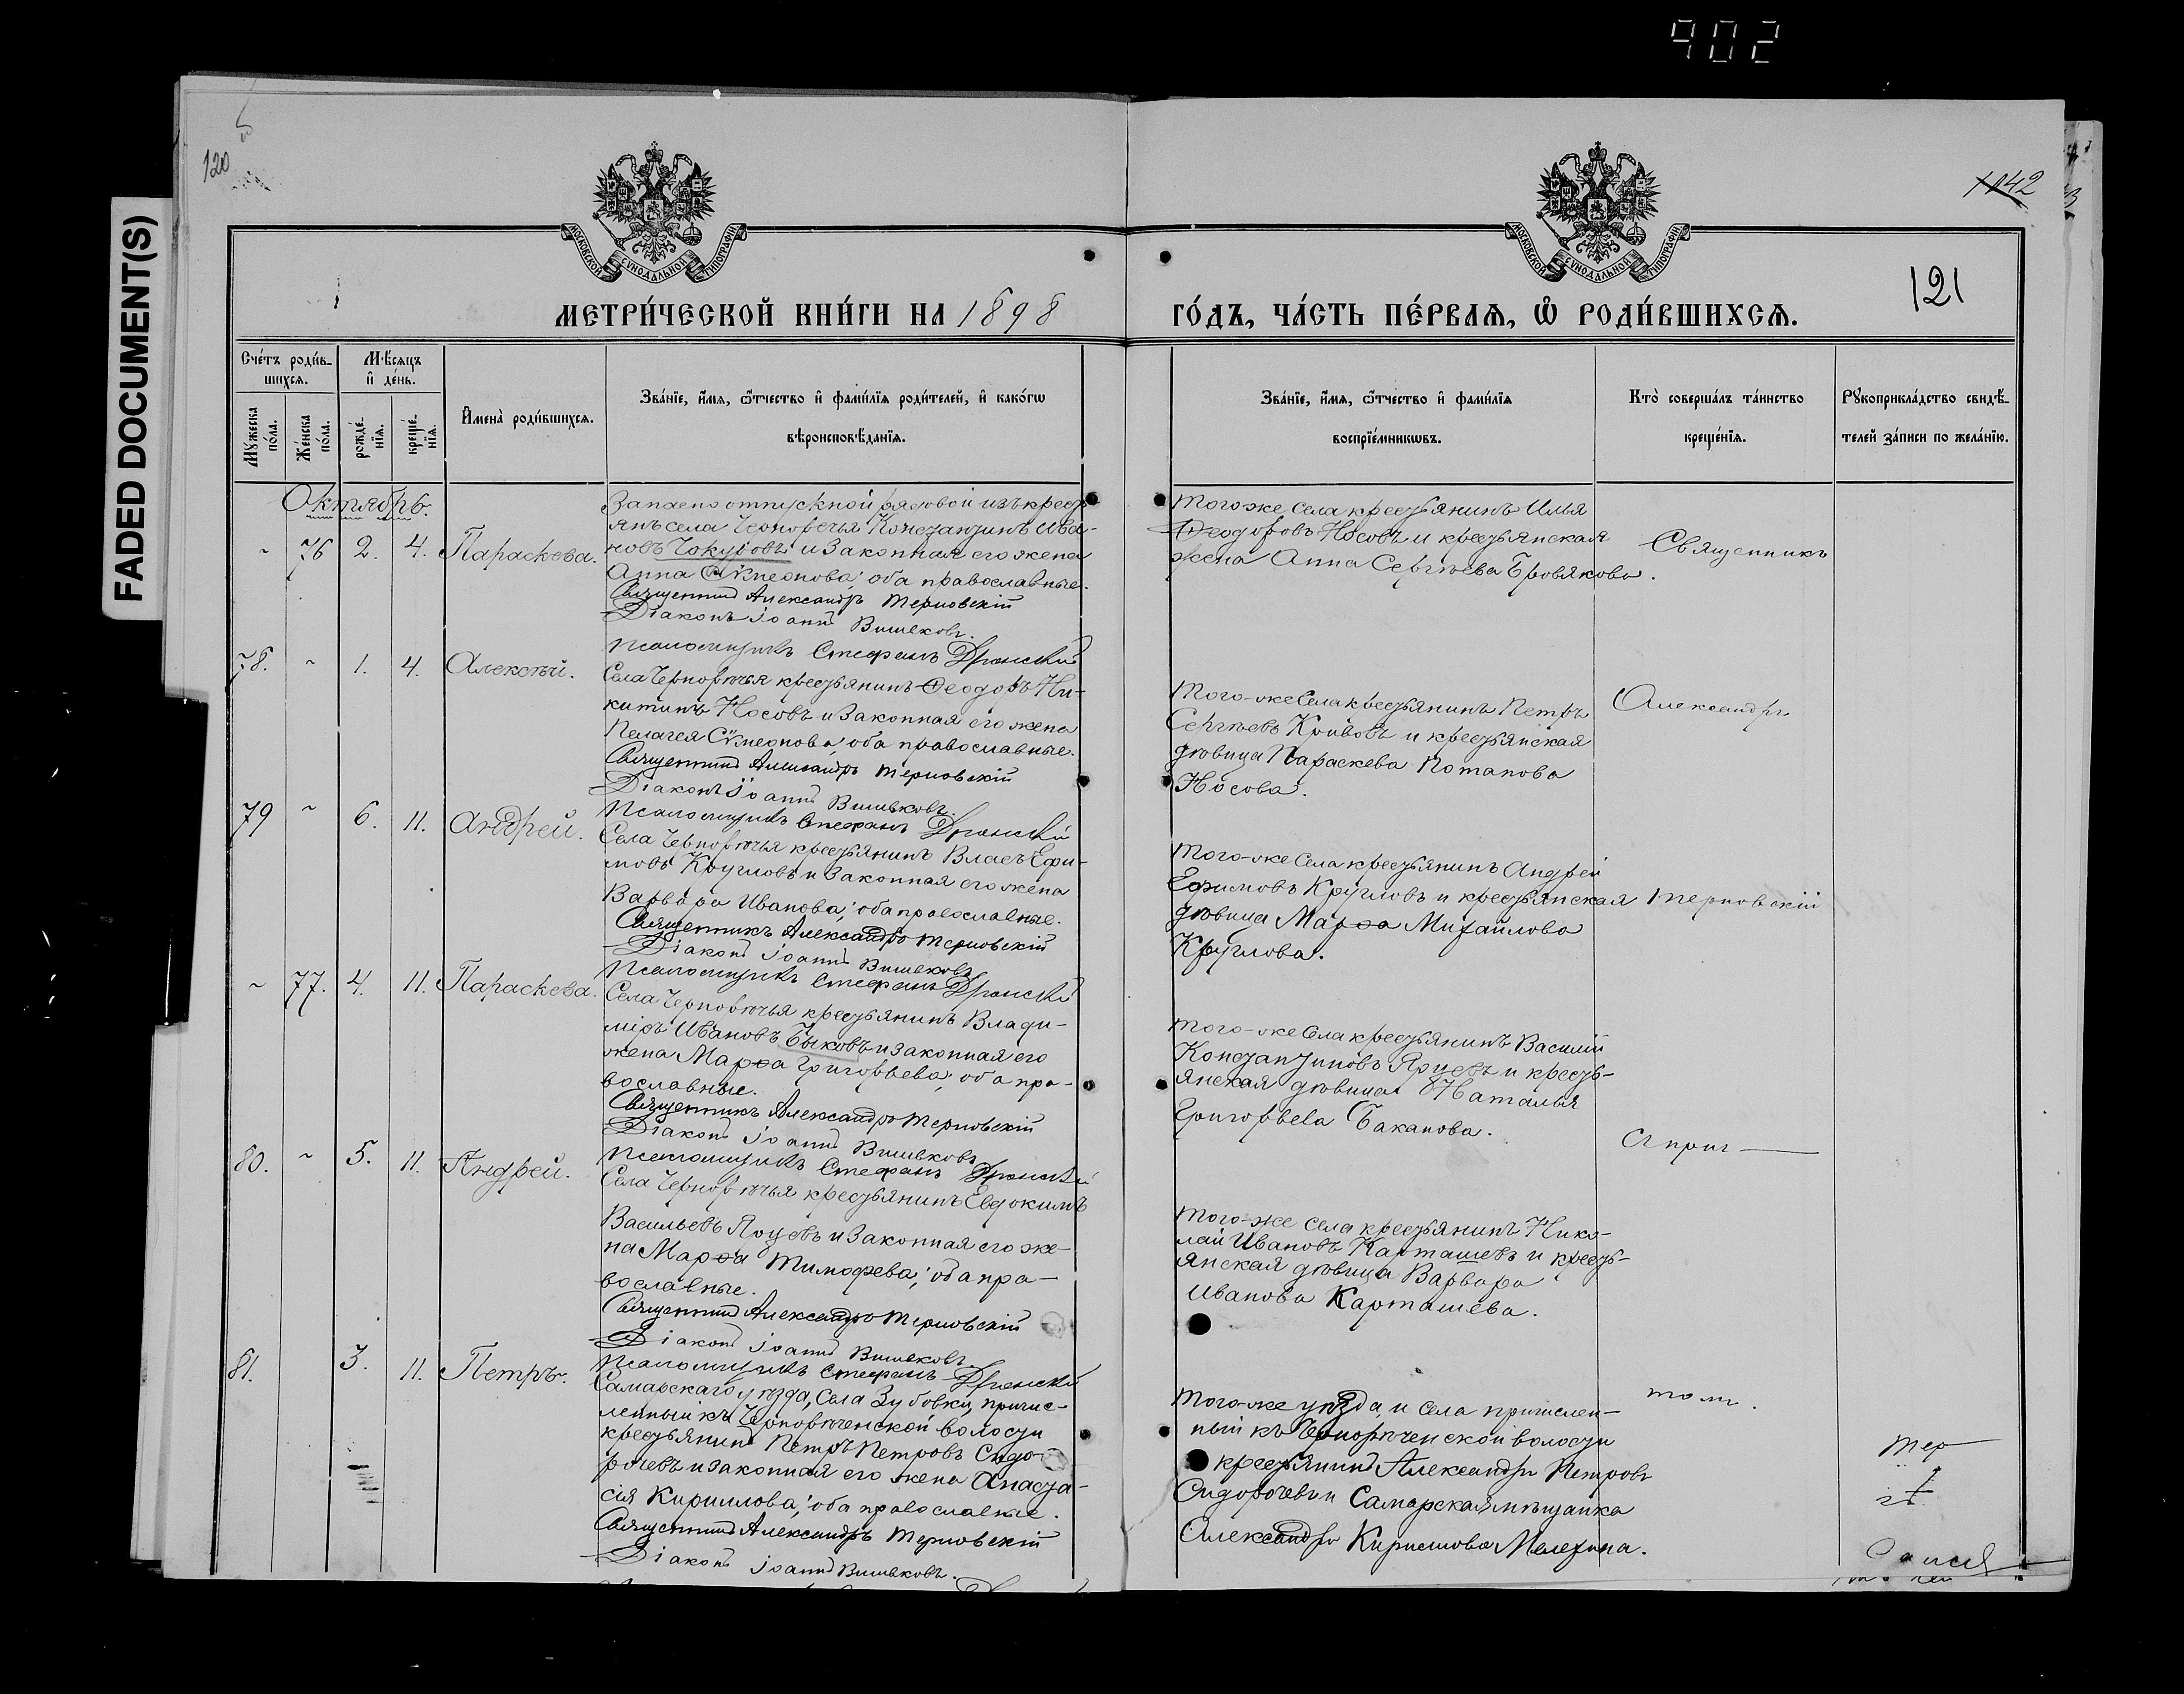 902
FADED DOCUMENT(S)
120
1142
МОСКОВСКОЙ СѴНОДАЛЬНОЙ ТИПОГРАФІИ
МОСКОВСКОЙ СѴНОДАЛЬНОЙ ТИПОГРАФІИ
121
МЕТРИ́ЧЕСКОЙ КНИ́ГИ НА 1898
ГО́ДЪ, ЧА́СТЬ ПЕ́РВАѦ, Ѽ РОДИ́ВШИХСѦ.
Сче́тъ роди́в-
шихсѧ.
Мꙋ́жеска
по́ла.
Же́нска
по́ла.
Мѣ́сяцъ
и҆ де́нь.
рожде́-
нїѧ.
креще́-
нїѧ.
И҆мена̀ роди́вшихсѧ.
Зва́нїе, и҆́мѧ, ѻ҆́тчество и҆ фами́лїѧ роди́телей, и҆ како́гѡ
вѣ́роисповѣ́данїѧ.
Зва́нїе, и҆́мѧ, ѻ҆́тчество и҆ фами́лїѧ
воспрїе́мникѡвъ.
Кто̀ соверша́лъ та́инство
креще́нїѧ.
Рꙋкоприкла́дство свидѣ́-
телей за́писи по жела́нїю.
Октябрь.
- 76 2. 4. Параскева.
Запасно отпускной рядовой изъ кресть
янъ села Чернореча Константинъ Ива-
новъ Чокуровъ и Законная его жена
Анна Сѵмеонова; оба православные.
Священникъ Александръ Терновскій
Діаконъ Іоаннъ Вишевковъ.
Псаломщикъ Стефанъ
Того же Села крестьянинъ Илья
Ѳеодоровъ Носовъ и крестьянская
жена Анна Сергѣева Бровякова.
Священникъ
78. - 1. 4. Алексѣй.
Села Чернорѣчья крестьянинъ Ѳеодоръ Ни-
китинъ Носовъ и Законная его жена
Пелагея Сѵмеонова; оба православные.
Священникъ Александръ Терновскій
Діаконъ Іоаннъ Вишевковъ.
Псаломщикъ Стефанъ
Того-же Села крестьянинъ Петръ
Сергѣевъ Кривовъ и крестьянская
дѣвица Параскева Потапова
Носова.
Александръ
79 - 6. 11. Андрей.
Села Чернорѣчья крестьянинъ Власъ Ефи-
мовъ Кругловъ и Законная его жена
Варвара Иванова; оба православные.
Священникъ Александръ Терновскій
Діаконъ Іоаннъ Вишевковъ
Псаломщикъ Стефанъ
Того-же Села крестьянинъ Андрей
Ефимовъ Кругловъ и крестьянская
дѣвица Марѳа Михайлова
Круглова.
Терновскій
- 77. 4. 11. Параскева.
Села Чернорѣчья крестьянинъ Влади-
міръ Ивановъ Быковъ и законная его
жена Марѳа Григорьева; оба пра-
вославные.
Священникъ Александръ Терновскій
Діаконъ Іоаннъ Вишевковъ
Псаломщикъ Стефанъ
Того-же Села крестьянинъ Василій
Константиновъ Ярцевъ и кресть-
янская дѣвица Наталья
Григорьева Баканова.
80. - 5. 11. Андрей.
Села Чернорѣчья крестьянинъ Евдокимъ
Васильевъ Ярцевъ и Законная его же-
на Марѳа Тимофева; оба пра-
вославные.
Священникъ Александръ Терновскій
Діаконъ Іоаннъ Вишевковъ
Псаломщикъ Стефанъ
Того-же Села крестьянинъ Нико-
лай Ивановъ Карташевъ и кресть-
янская дѣвица Варвара
Иванова Карташева.
С прич
81. 3. 11. Петръ.
Самарскаго уѣзда, Села Зубовки, причис-
ленный къ Чернорѣченской волости
крестьянинъ Петръ Петровъ Сидо-
рочевъ и законная его жена Анаста-
сія Кириллова; оба православные.
Священникъ Александръ Терновскій
Діаконъ Іоаннъ Вишевковъ.
Того-же уѣзда, и села причислен-
ный къ Чернорѣченской волости
крестьянинъ Александръ Петровъ
Сидорочевъ и Самарская мѣщанка
Александра Кириллова Мелехина.
томъ.